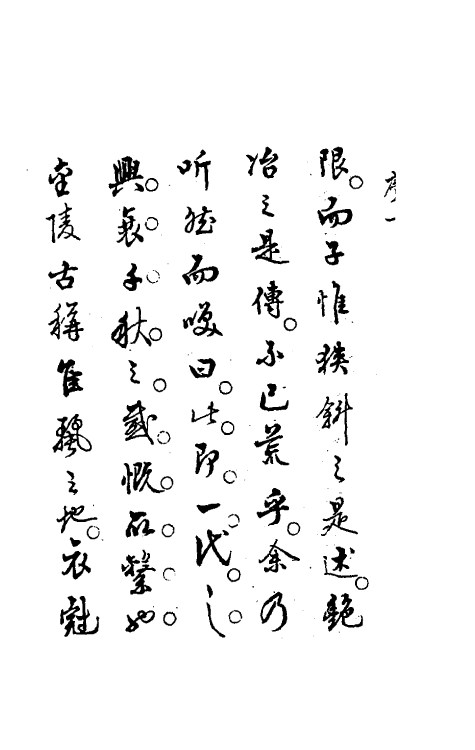 序一
限。而子惟狹斜之是述。艷
冶之是傳。不已荒乎。余乃
听然而曰。此。即。一。代。之。
興。衰。千。秋。之。感。慨。所。繫。也。
金陵古稱佳麗之地。衣冠